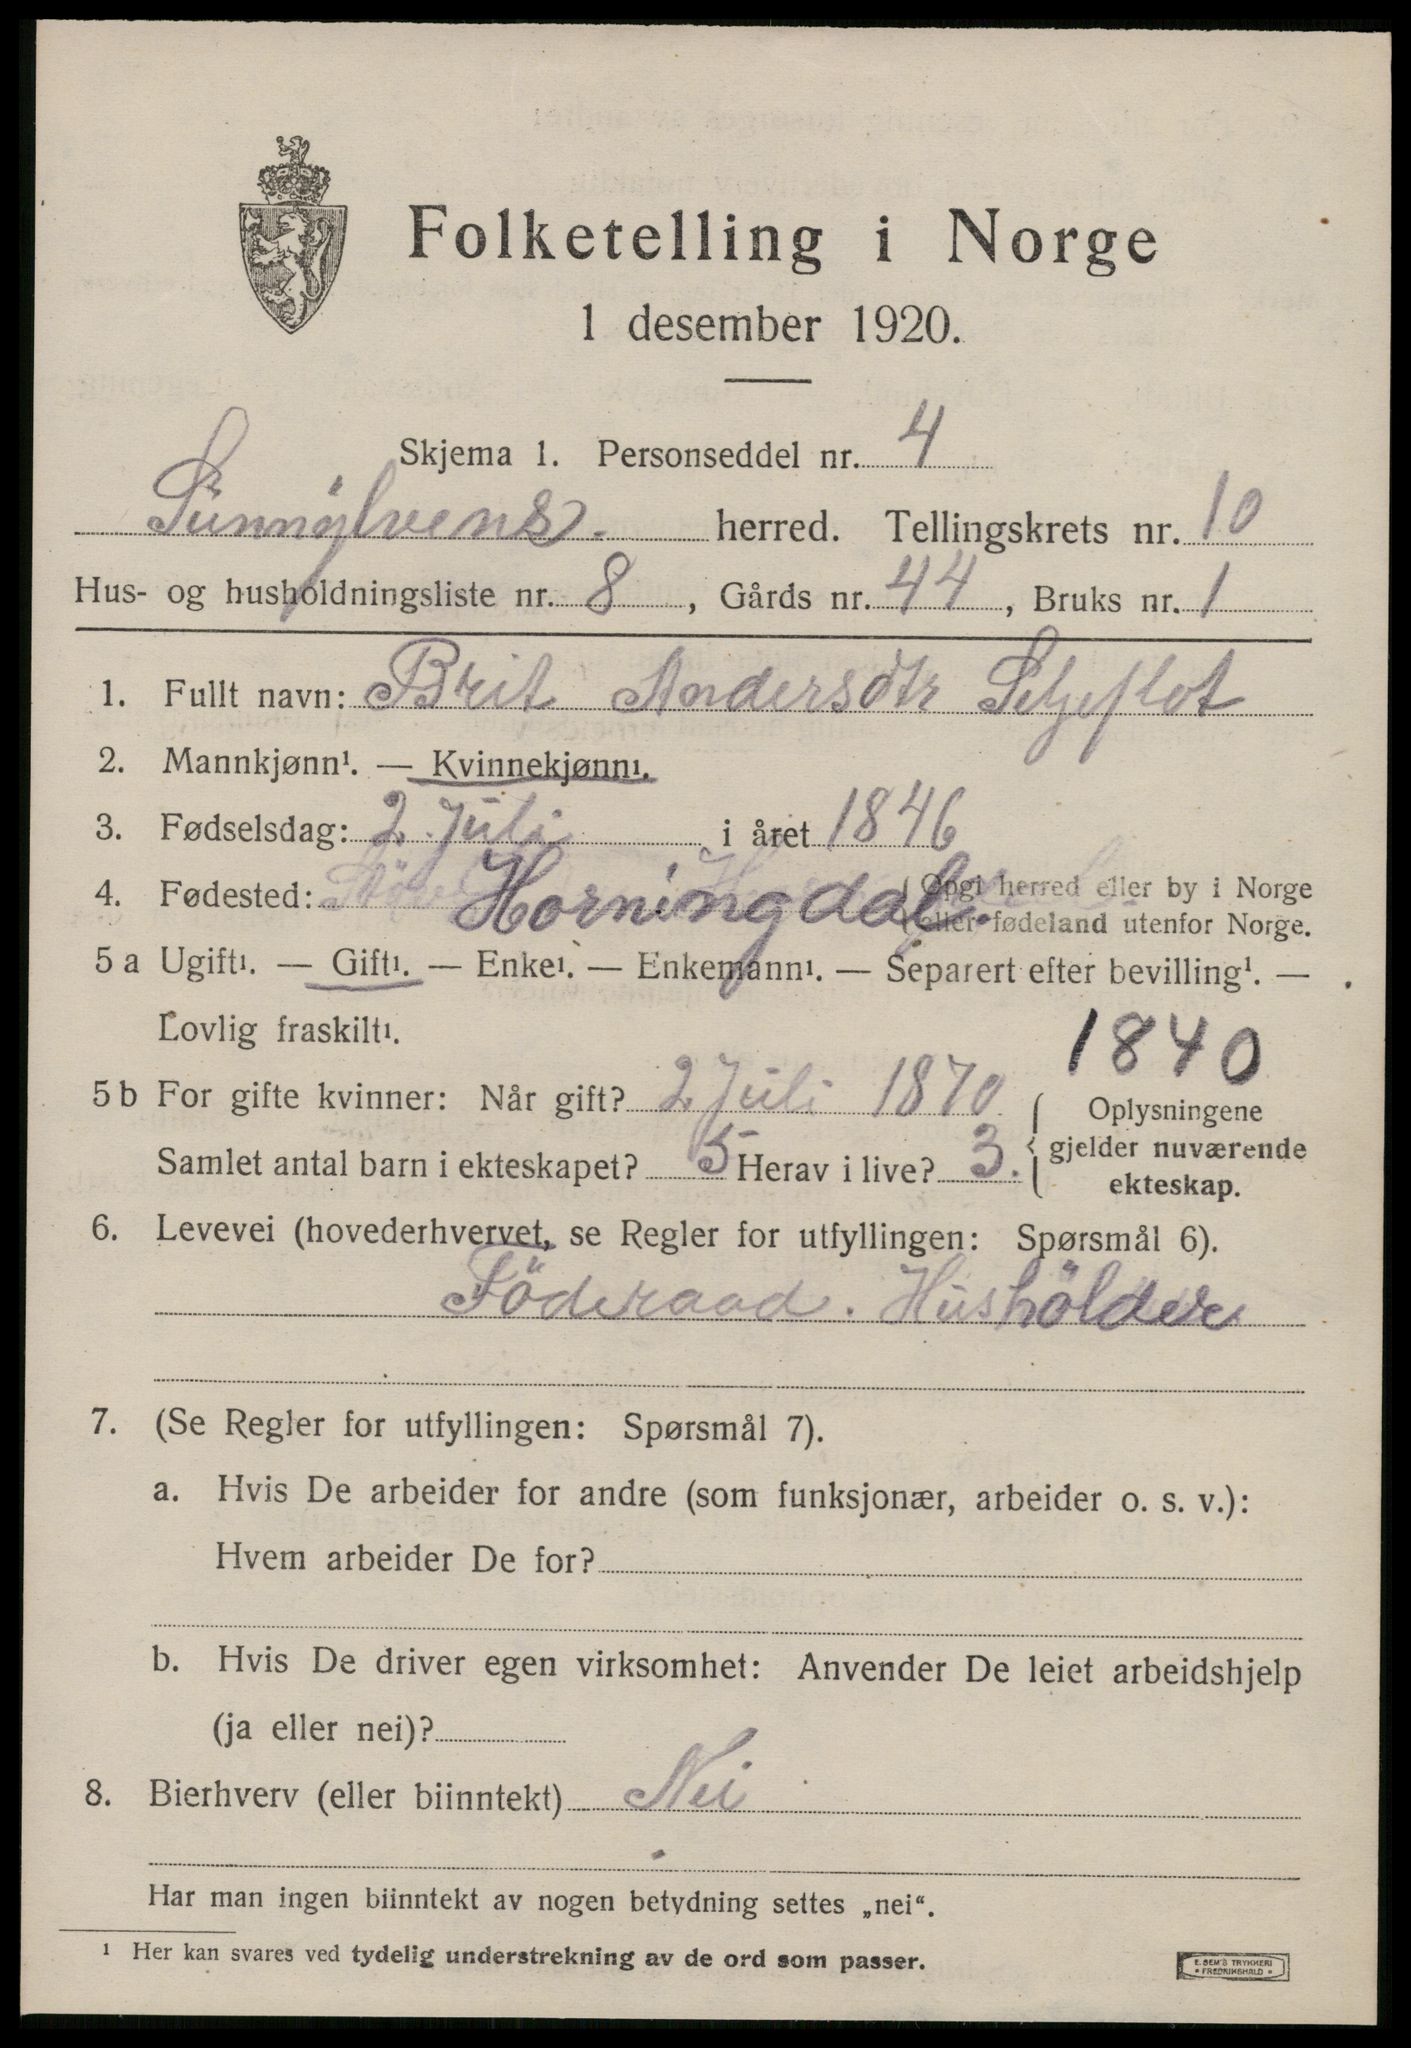 Folketelling i Norge
1 desember 1920.
Skjema 1. Personseddel nr. 4
Sunnylvens. herred. Tellingskrets nr. 10
Hus- og husholdningsliste nr. 8, Gårds nr. 44, Bruks nr. 1
1. Fullt navn: Brit Andersdtr Seljeflot
2. Mannkjønn¹. — Kvinnekjønn¹.
3. Fødselsdag: 2 Juli i året 1846
4. Fødested: Horningdal. (Opgi herred eller by i Norge
eller fødeland utenfor Norge.
5 a Ugift¹. — Gift¹. — Enke¹. — Enkemann¹. — Separert efter bevilling¹. —
Lovlig fraskilt¹.
1840
5 b For gifte kvinner: Når gift? 2 Juli 1870
Samlet antal barn i ekteskapet? 5 Herav i live? 3.
Oplysningene
gjelder nuværende
ekteskap.
6. Levevei (hovederhvervet, se Regler for utfyllingen: Spørsmål 6).
Föderaad. Husholder
7. (Se Regler for utfyllingen: Spørsmål 7).
a. Hvis De arbeider for andre (som funksjonær, arbeider o. s. v.):
Hvem arbeider De for?
b. Hvis De driver egen virksomhet: Anvender De leiet arbeidshjelp
(ja eller nei)?
8. Bierhverv (eller biinntekt) Nei
Har man ingen biinntekt av nogen betydning settes „nei“.
¹ Her kan svares ved tydelig understrekning av de ord som passer.
E. SEM'S TRYKKERI
• FREDRIKSHALD •